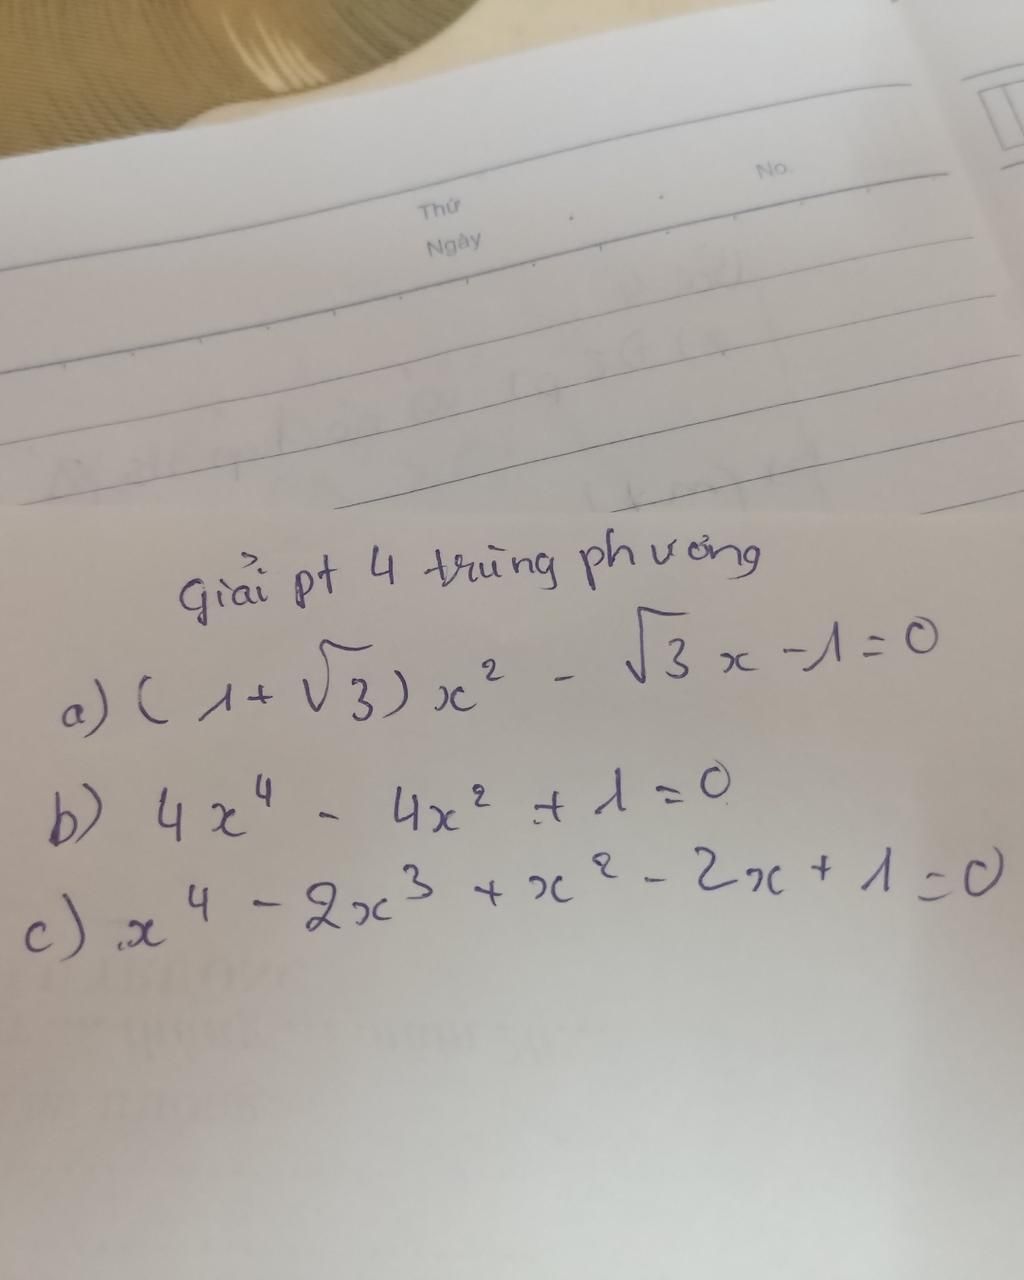 Thứ
Ngày
No.
Giải pt 4 trùng phương
a) (1+√3)x² - √3x -1=0
b) 4x⁴ - 4x² + 1=0
c) x⁴ - 2x³ + x² - 2x + 1=0